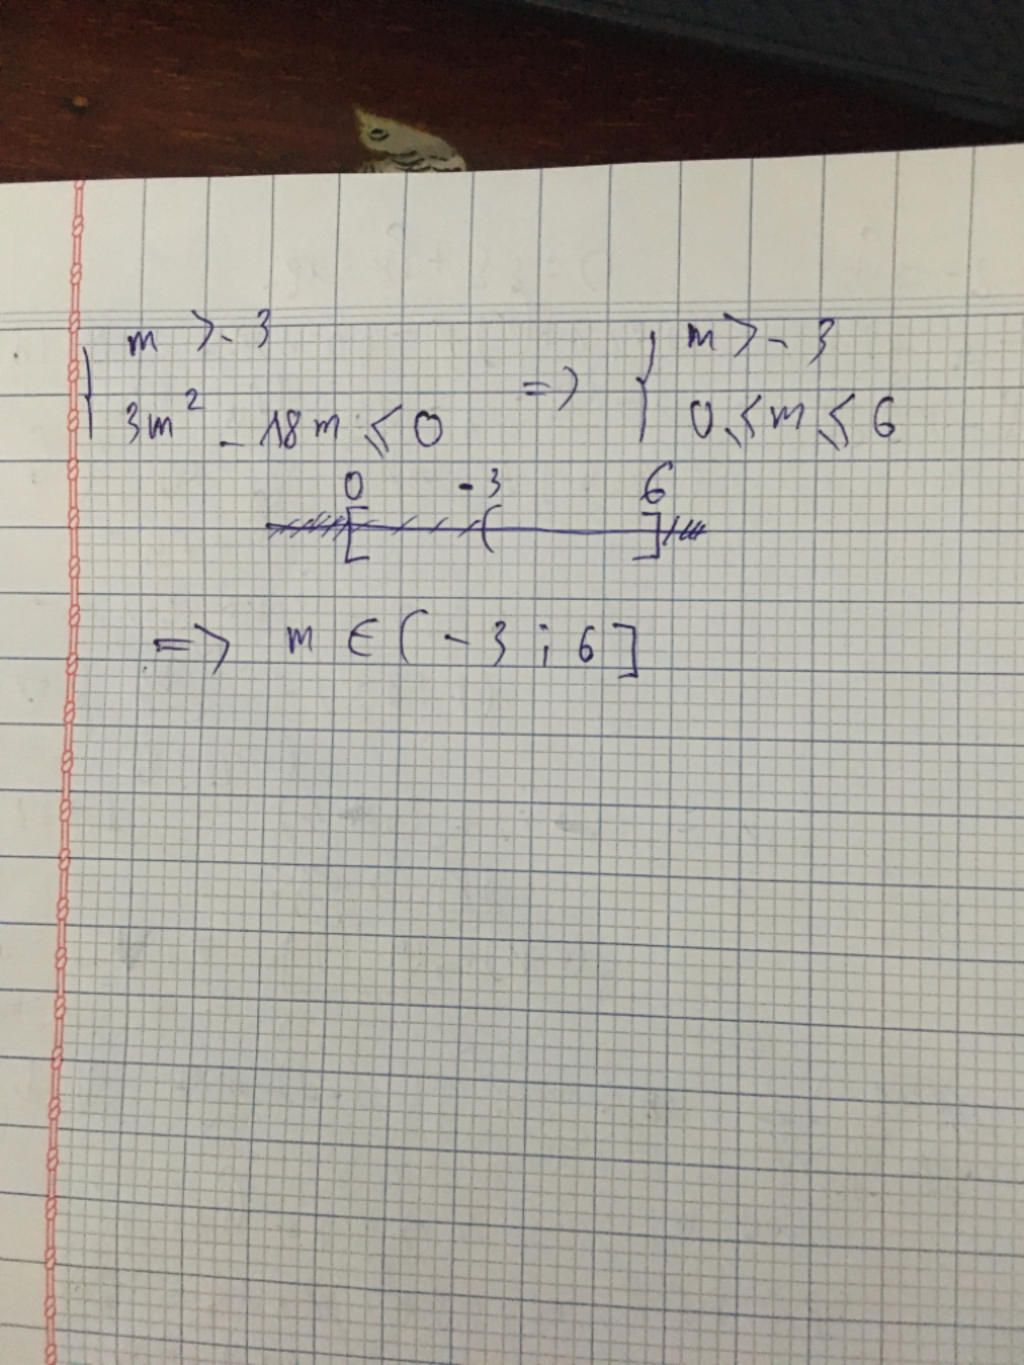 { m > -3
3m² - 18m ≤ 0 => { m > -3
0 ≤ m ≤ 6
0 -3 6
[ ( ]
=> m ∈ (-3 ; 6]